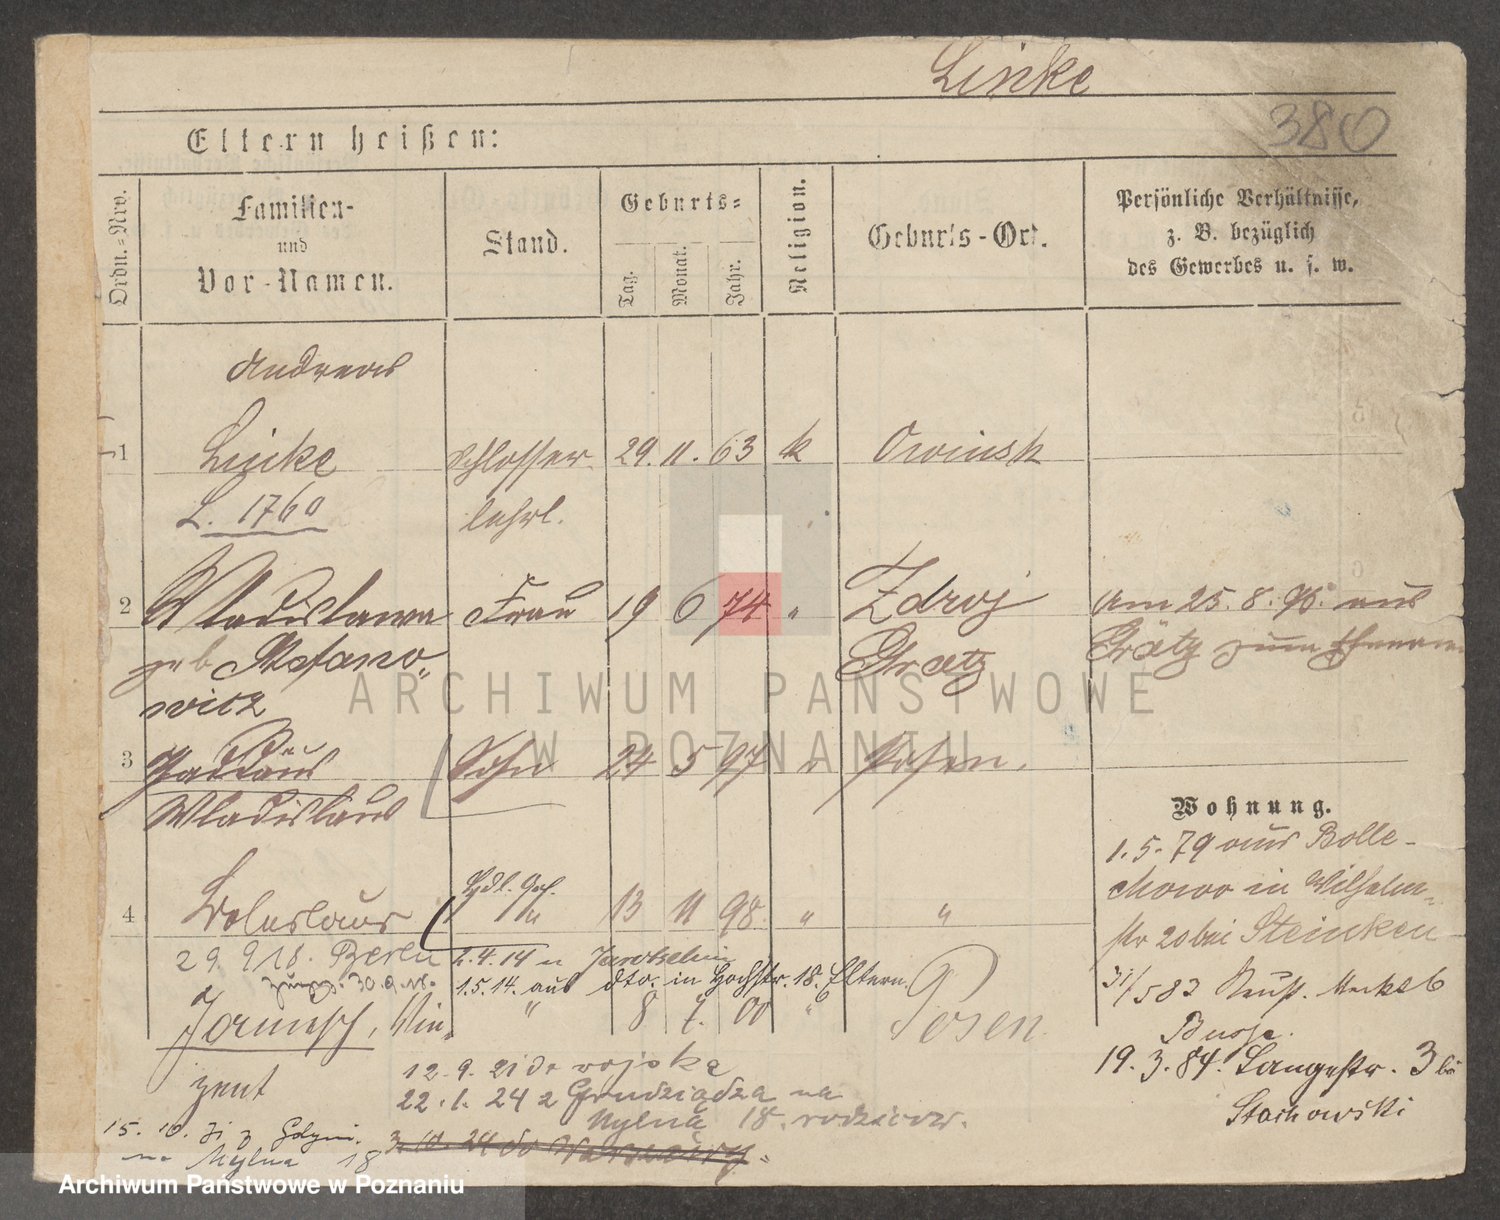 Linke
380
Eltern heißen:
Ordn.-Nro.
Familien-
und
Vor-Namen.
Stand.
Geburts-
Tag.
Monat.
Jahr.
Religion.
Geburts-Ort.
Persönliche Verhältnisse,
z. B. bezüglich
des Gewerbes u. s. w.
Andreas
1 Linke Schlosser 29. 11. 63 k Owinsk
L. 1760 lehrl.
2 Wladislawa Frau 19 6 74 " Zdroj am 25. 8. 96. aus
geb Stefano- Graetz Grätz zum
witz
3 Taddäus Sohn 24 5 97 " Posen.
Wladislaus
Wohnung.
1. 5. 79 aus Bolle-
chowo in Wilhelm-
4 Boleslaus " 13 11 98. " "
str 20 bei Steinken
29. 9 18. Berlin 2.4.14 n Jarotschin
zurück. 30.9.18. 1.5.14. aus dto. in Hochstr. 18. Eltern.
31/5 83 Neust. Markt 6
Busse.
Janusch, Vin- " 8 7. 00 " Posen
zent
19. 3. 84. Langestr. 3 bei
Stachowski
12. 9. 21 do wojska
22. 1. 24 z Grudziądza na
Mylna 18. rodziców.
15. 10. 31 z Gdyni.
na Mylna 18
3. 10. 24 do Warszawy.
ARCHIWUM PAŃSTWOWE
W POZNANIU
Archiwum Państwowe w Poznaniu